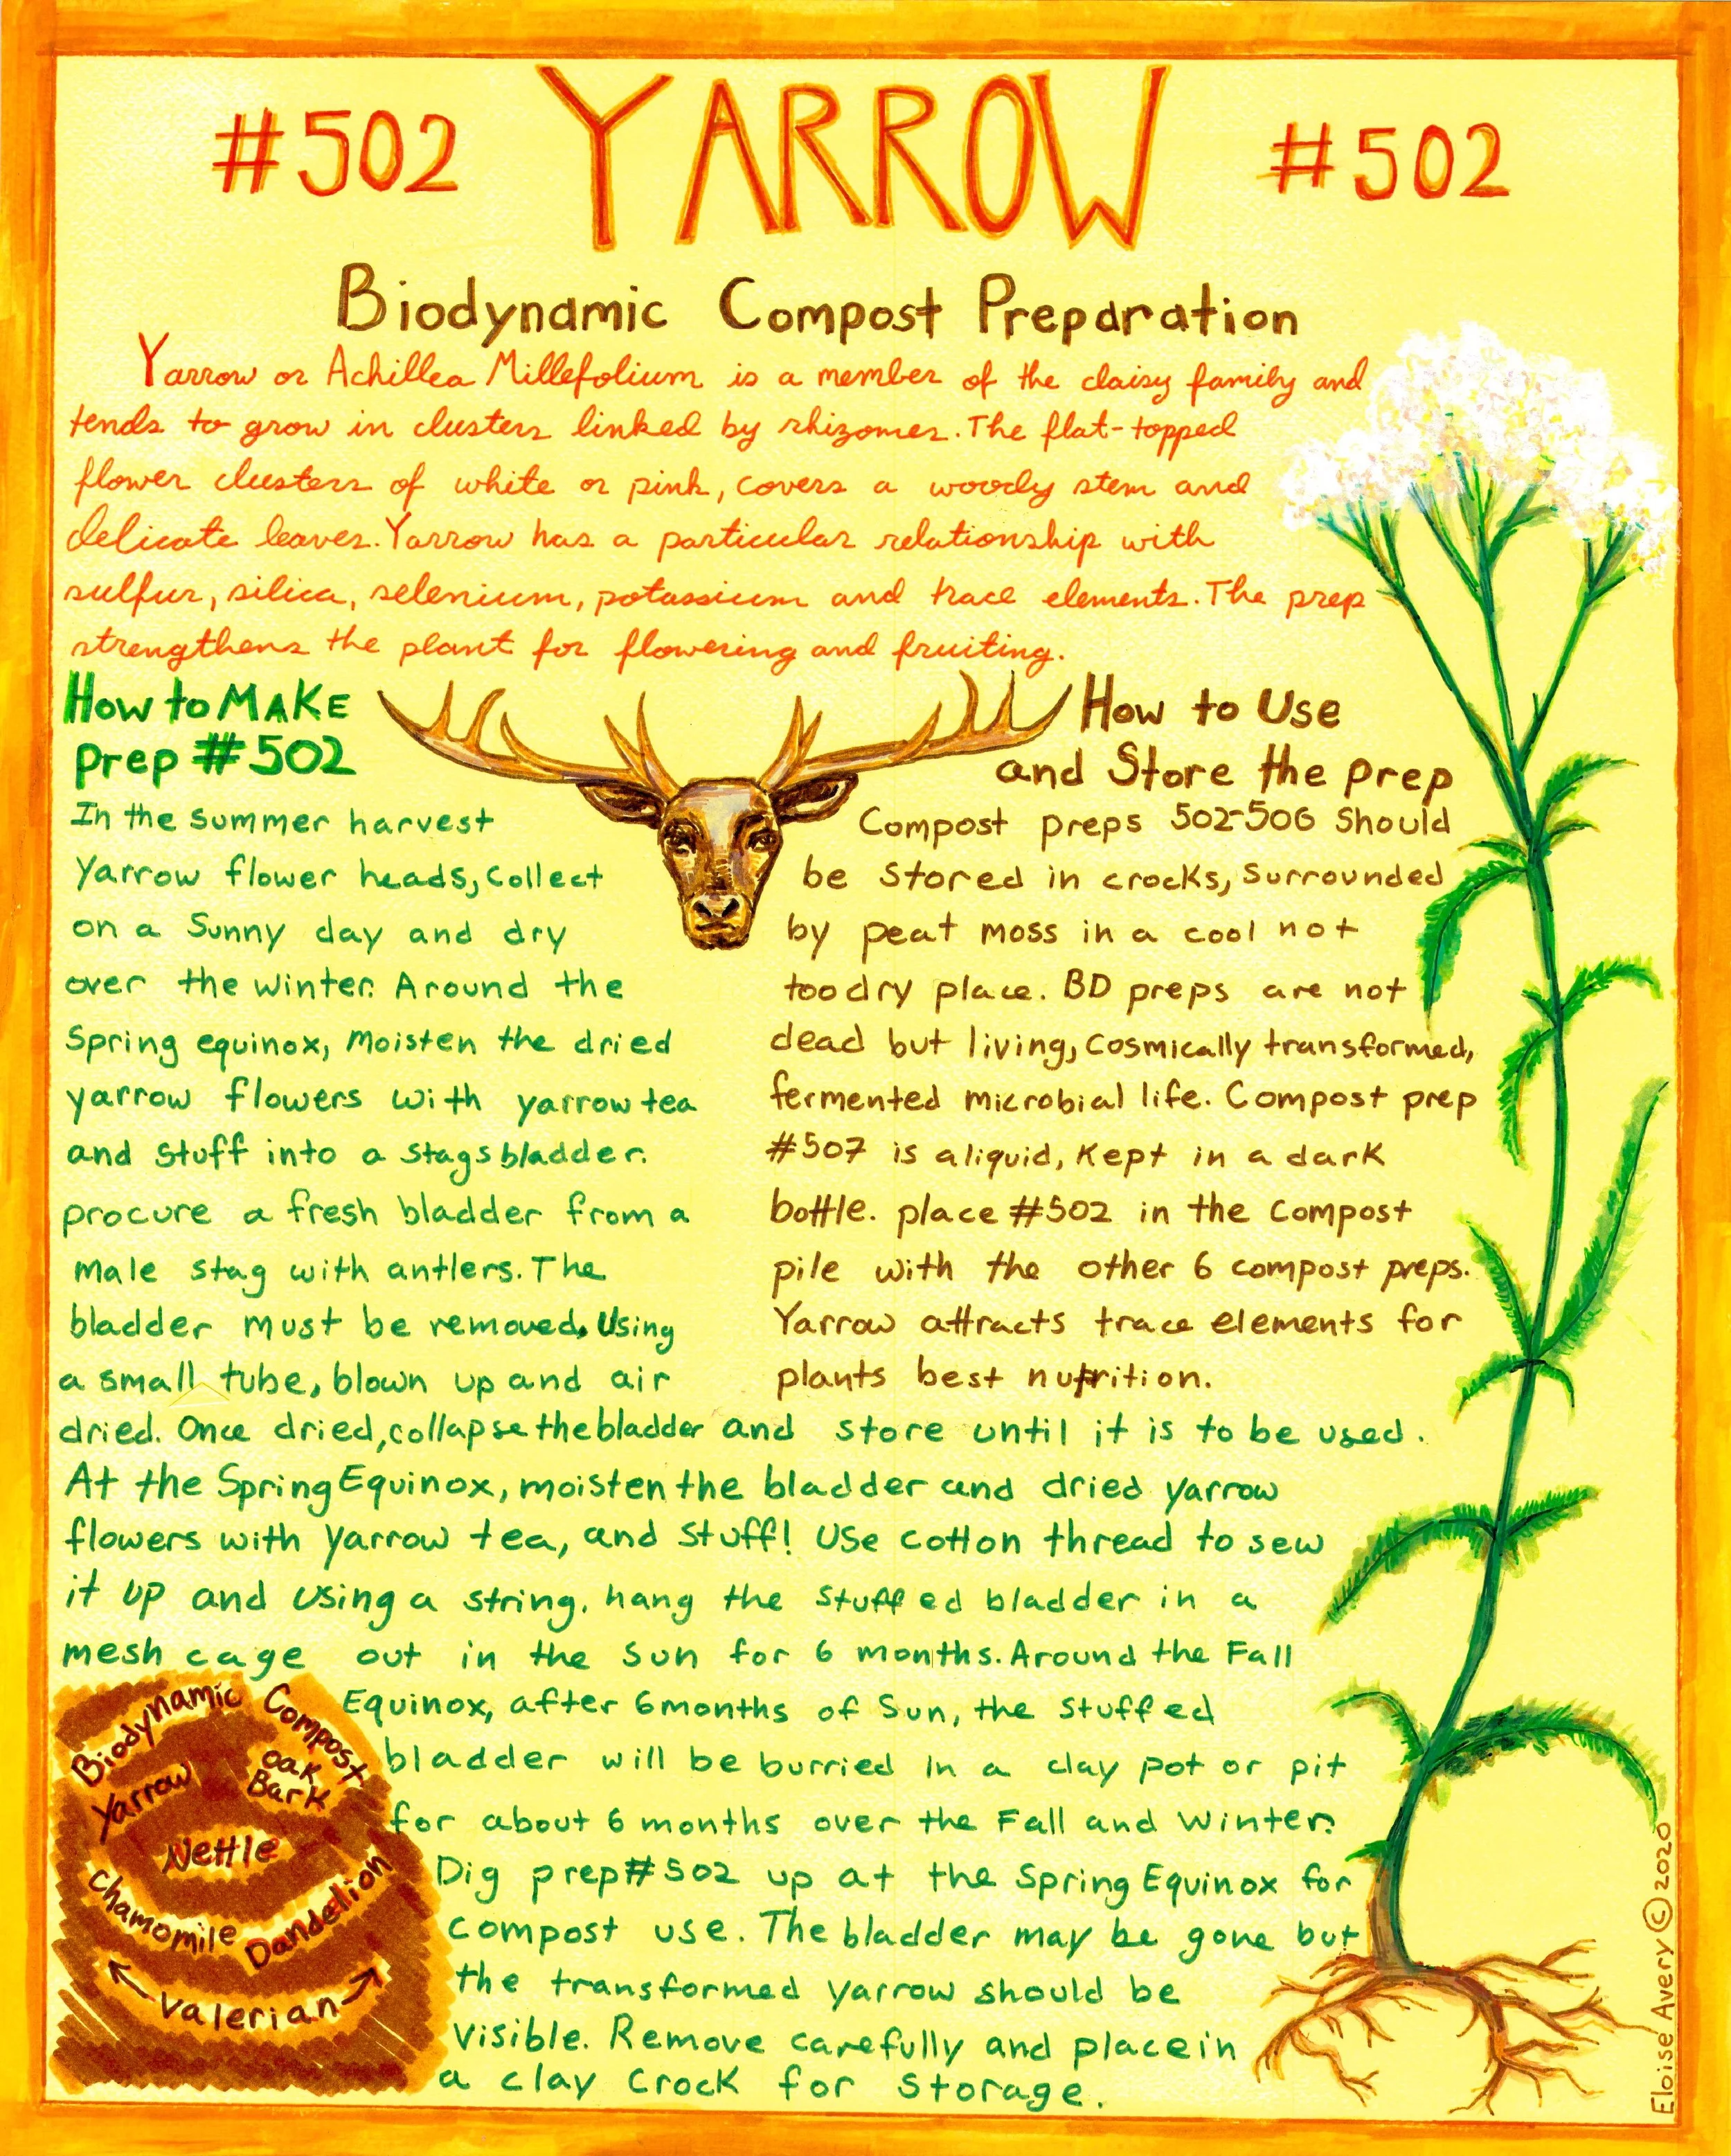 #502 YARROW #502
Biodynamic Compost Preparation
Yarrow or Achillea Millefolium is a member of the daisy family and
tends to grow in clusters linked by rhizomes. The flat-topped
flower clusters of white or pink, covers a woody stem and
delicate leaves. Yarrow has a particular relationship with
sulfur, silica, selenium, potassium and trace elements. The prep
strengthens the plant for flowering and fruiting.
How to MAKE
prep #502
In the summer harvest
Yarrow flower heads, collect
on a Sunny day and dry
over the winter. Around the
Spring equinox, moisten the dried
yarrow flowers with yarrow tea
and stuff into a stags bladder.
procure a fresh bladder from a
male stag with antlers. The
bladder must be removed, Using
a small tube, blown up and air
dried. Once dried, collapse the bladder and store until it is to be used.
At the Spring Equinox, moisten the bladder and dried yarrow
flowers with Yarrow tea, and stuff! Use cotton thread to sew
it up and using a string, hang the stuffed bladder in a
mesh cage out in the Sun for 6 months. Around the Fall
Equinox, after 6 months of Sun, the stuffed
bladder will be burried in a clay pot or pit
for about 6 months over the Fall and Winter.
Dig prep #502 up at the Spring Equinox for
compost use. The bladder may be gone but
the transformed yarrow should be
visible. Remove carefully and place in
a clay crock for storage.
How to Use
and Store the prep
Compost preps 502-506 Should
be stored in crocks, surrounded
by peat moss in a cool not
too dry place. BD preps are not
dead but living, cosmically transformed,
fermented microbial life. Compost prep
#507 is a liquid, Kept in a dark
bottle. place #502 in the compost
pile with the other 6 compost preps.
Yarrow attracts trace elements for
plants best nutrition.
Biodynamic Compost
Yarrow
Oak
Bark
Nettle
Chamomile
Dandelion
Valerian
Eloise Avery © 2020